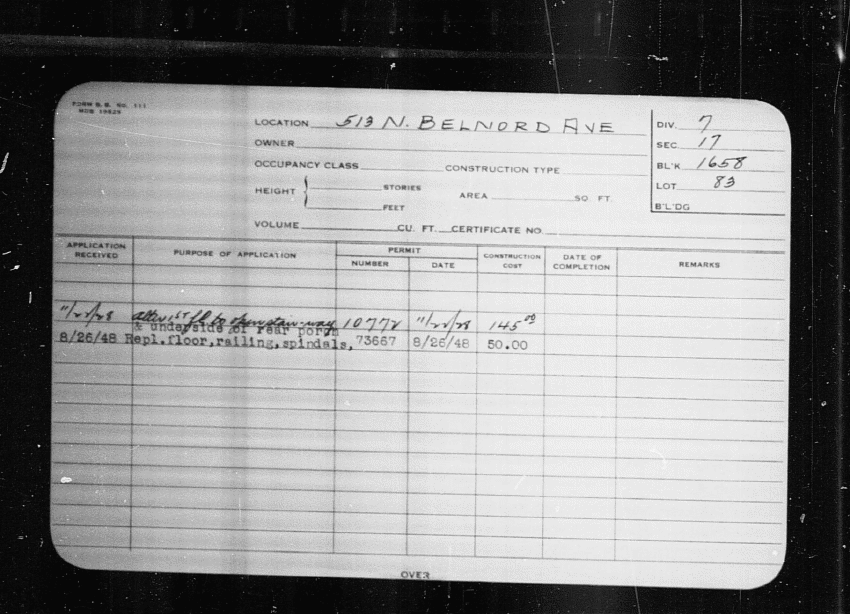 FORM B. B. No. 111
LOCATION 513 N. BELNORD AVE
DIV. 7
OWNER
SEC 17
OCCUPANCY CLASS CONSTRUCTION TYPE
BL'K 1658
HEIGHT { STORIES FEET
AREA SQ. FT.
LOT 83
B'L'DG
VOLUME CU. FT. CERTIFICATE NO.
APPLICATION RECEIVED PURPOSE OF APPLICATION PERMIT NUMBER DATE CONSTRUCTION COST DATE OF COMPLETION REMARKS
11/22/28 alter 1ST fl to open stair-way 10772 11/22/28 145.00
& underside of rear porch
8/26/48 Repl.floor,railing,spindals, 73667 8/26/48 50.00
OVER